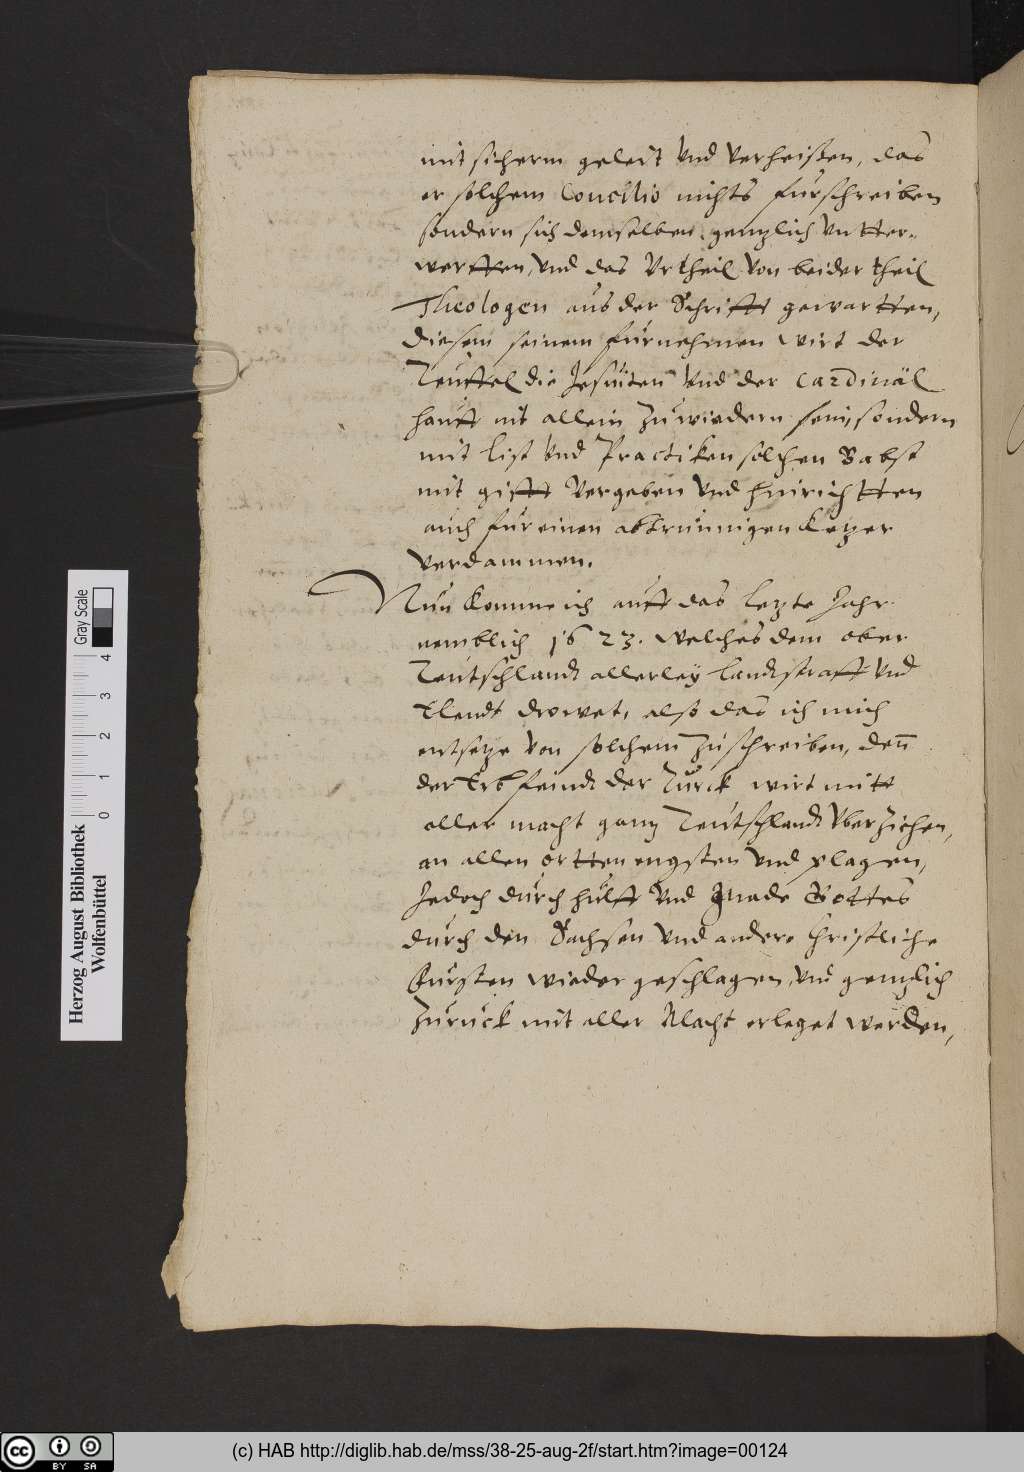 mit sicherm geleit vnd verheißen, das
er solchem Concilio nichts furschreiben
sondern sich demselben gentzlich vntter-
werffen, vnd das Vrtheil von beider theil
Theologen aus der Schrifft gewartten,
diesem seinem furnehmen wirt der
Teuffel die Jesuiten vnd der Cardinäl
hauff nit allein zuwiedern sein, sondern
mit list vnd Practiken solchen Babst
mit gifft vergeben vnd hinrichtten
auch fur einen abtrunnigen Ketzer
verdammen.
Nun komme ich auff das letzte Jahr
nemblich 1623. welches dem ober
Teutschlandt allerley landtstraff vnd
Elendt drowet, also das ich mich
entsetze von solchem zuschreiben, den̅
der Erbfeindt der Turck wirt mitt
aller macht gantz Teutschlandt vberziehen,
an allen ortten engsten vnd plagen,
Jedoch durch hulff vnd gnade Gottes
durch den Sachsen vnd andere Christliche
Fursten wieder geschlagen, vnd gentzlich
zuruck mit aller Macht erleget werden,
Herzog August Bibliothek
Wolfenbüttel
0 1 2 3 4 Gray Scale
cc BY SA
(c) HAB http://diglib.hab.de/mss/38-25-aug-2f/start.htm?image=00124